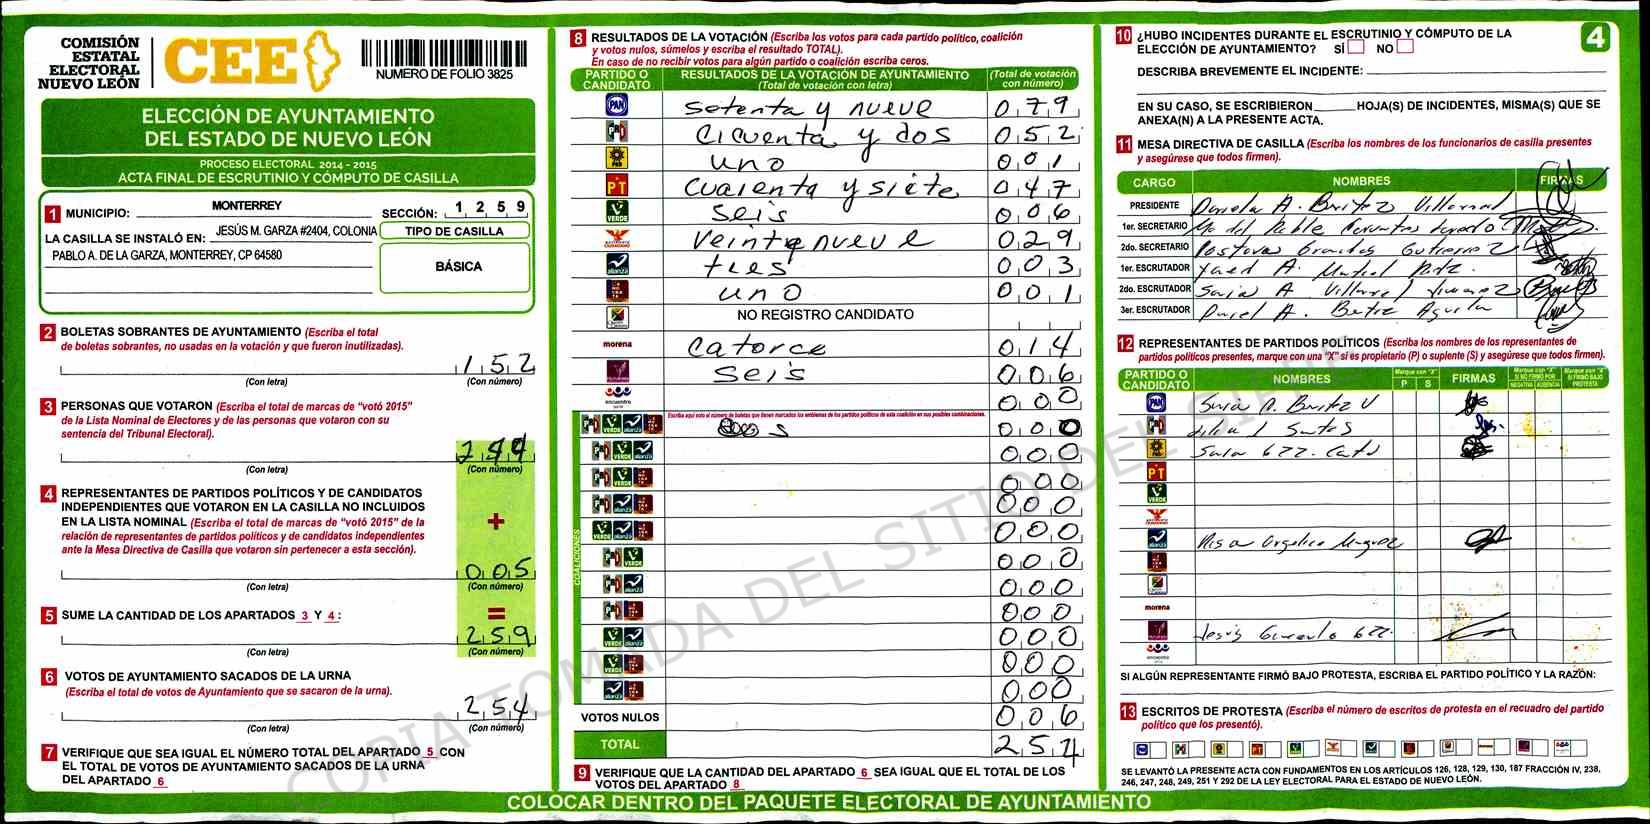 COMISIÓN
ESTATAL
ELECTORAL
NUEVO LEÓN
CEE
NUMERO DE FOLIO 3825
ELECCIÓN DE AYUNTAMIENTO
DEL ESTADO DE NUEVO LEÓN
PROCESO ELECTORAL 2014 - 2015
ACTA FINAL DE ESCRUTINIO Y CÓMPUTO DE CASILLA
1 MUNICIPIO: MONTERREY SECCIÓN: 1 2 5 9
LA CASILLA SE INSTALÓ EN: JESÚS M. GARZA #2404, COLONIA
PABLO A. DE LA GARZA, MONTERREY, CP 64580
TIPO DE CASILLA
BÁSICA
2 BOLETAS SOBRANTES DE AYUNTAMIENTO (Escriba el total
de boletas sobrantes, no usadas en la votación y que fueron inutilizadas).
152
(Con letra) (Con número)
3 PERSONAS QUE VOTARON (Escriba el total de marcas de "votó 2015"
de la Lista Nominal de Electores y de las personas que votaron con su
sentencia del Tribunal Electoral).
(Con letra) (Con número)
4 REPRESENTANTES DE PARTIDOS POLÍTICOS Y DE CANDIDATOS
INDEPENDIENTES QUE VOTARON EN LA CASILLA NO INCLUIDOS
EN LA LISTA NOMINAL (Escriba el total de marcas de "votó 2015" de la
relación de representantes de partidos políticos y de candidatos independientes
ante la Mesa Directiva de Casilla que votaron sin pertenecer a esta sección).
+
005
(Con letra) (Con número)
5 SUME LA CANTIDAD DE LOS APARTADOS 3 Y 4 :
=
259
(Con letra) (Con número)
6 VOTOS DE AYUNTAMIENTO SACADOS DE LA URNA
(Escriba el total de votos de Ayuntamiento que se sacaron de la urna).
254
(Con letra) (Con número)
7 VERIFIQUE QUE SEA IGUAL EL NÚMERO TOTAL DEL APARTADO 5 CON
EL TOTAL DE VOTOS DE AYUNTAMIENTO SACADOS DE LA URNA
DEL APARTADO 6
8 RESULTADOS DE LA VOTACIÓN (Escriba los votos para cada partido político, coalición
y votos nulos, súmelos y escriba el resultado TOTAL).
En caso de no recibir votos para algún partido o coalición escriba ceros.
PARTIDO O CANDIDATO RESULTADOS DE LA VOTACIÓN DE AYUNTAMIENTO (Total de votación con letra) (Total de votación con número)
PAN setenta y nueve 079
PRD cicuenta y dos 052
uno 001
PT cuarenta y siete 047
VERDE seis 006
veintinueve 029
alianza tres 003
uno 001
NO REGISTRO CANDIDATO
morena catorce 014
seis 006
encuentro 000
Escriba aquí solo el número de boletas que tienen marcados los emblemas de los partidos políticos de esta coalición en sus posibles combinaciones.
000
000
000
000
000
000
000
000
000
000
000
COALICIONES
VOTOS NULOS 006
TOTAL 254
9 VERIFIQUE QUE LA CANTIDAD DEL APARTADO 6 SEA IGUAL QUE EL TOTAL DE LOS
VOTOS DEL APARTADO 8
10 ¿HUBO INCIDENTES DURANTE EL ESCRUTINIO Y CÓMPUTO DE LA
ELECCIÓN DE AYUNTAMIENTO? SÍ NO
4
DESCRIBA BREVEMENTE EL INCIDENTE:
EN SU CASO, SE ESCRIBIERON HOJA(S) DE INCIDENTES, MISMA(S) QUE SE
ANEXA(N) A LA PRESENTE ACTA.
11 MESA DIRECTIVA DE CASILLA (Escriba los nombres de los funcionarios de casilla presentes
y asegúrese que todos firmen).
CARGO NOMBRES FIRMAS
PRESIDENTE A. Benitez Villarreal
1er. SECRETARIO
2do. SECRETARIO Gutierrez
1er. ESCRUTADOR A.
2do. ESCRUTADOR A
3er. ESCRUTADOR A.
12 REPRESENTANTES DE PARTIDOS POLÍTICOS (Escriba los nombres de los representantes de
partidos políticos presentes, marque con una "X" si es propietario (P) o suplente (S) y asegúrese que todos firmen).
PARTIDO O CANDIDATO NOMBRES Marque con "X" P S FIRMAS Marque con "X" SI NO FIRMÓ POR NEGATIVA AUSENCIA Marque con "X" SI FIRMÓ BAJO PROTESTA
PAN
PT
VERDE
alianza
morena
Jesús
encuentro
SI ALGÚN REPRESENTANTE FIRMÓ BAJO PROTESTA, ESCRIBA EL PARTIDO POLÍTICO Y LA RAZÓN:
13 ESCRITOS DE PROTESTA (Escriba el número de escritos de protesta en el recuadro del partido
político que los presentó).
SE LEVANTÓ LA PRESENTE ACTA CON FUNDAMENTOS EN LOS ARTÍCULOS 126, 128, 129, 130, 187 FRACCIÓN IV, 238,
246, 247, 248, 249, 251 Y 292 DE LA LEY ELECTORAL PARA EL ESTADO DE NUEVO LEÓN.
COLOCAR DENTRO DEL PAQUETE ELECTORAL DE AYUNTAMIENTO
COPIA TOMADA DEL SITIO DEL